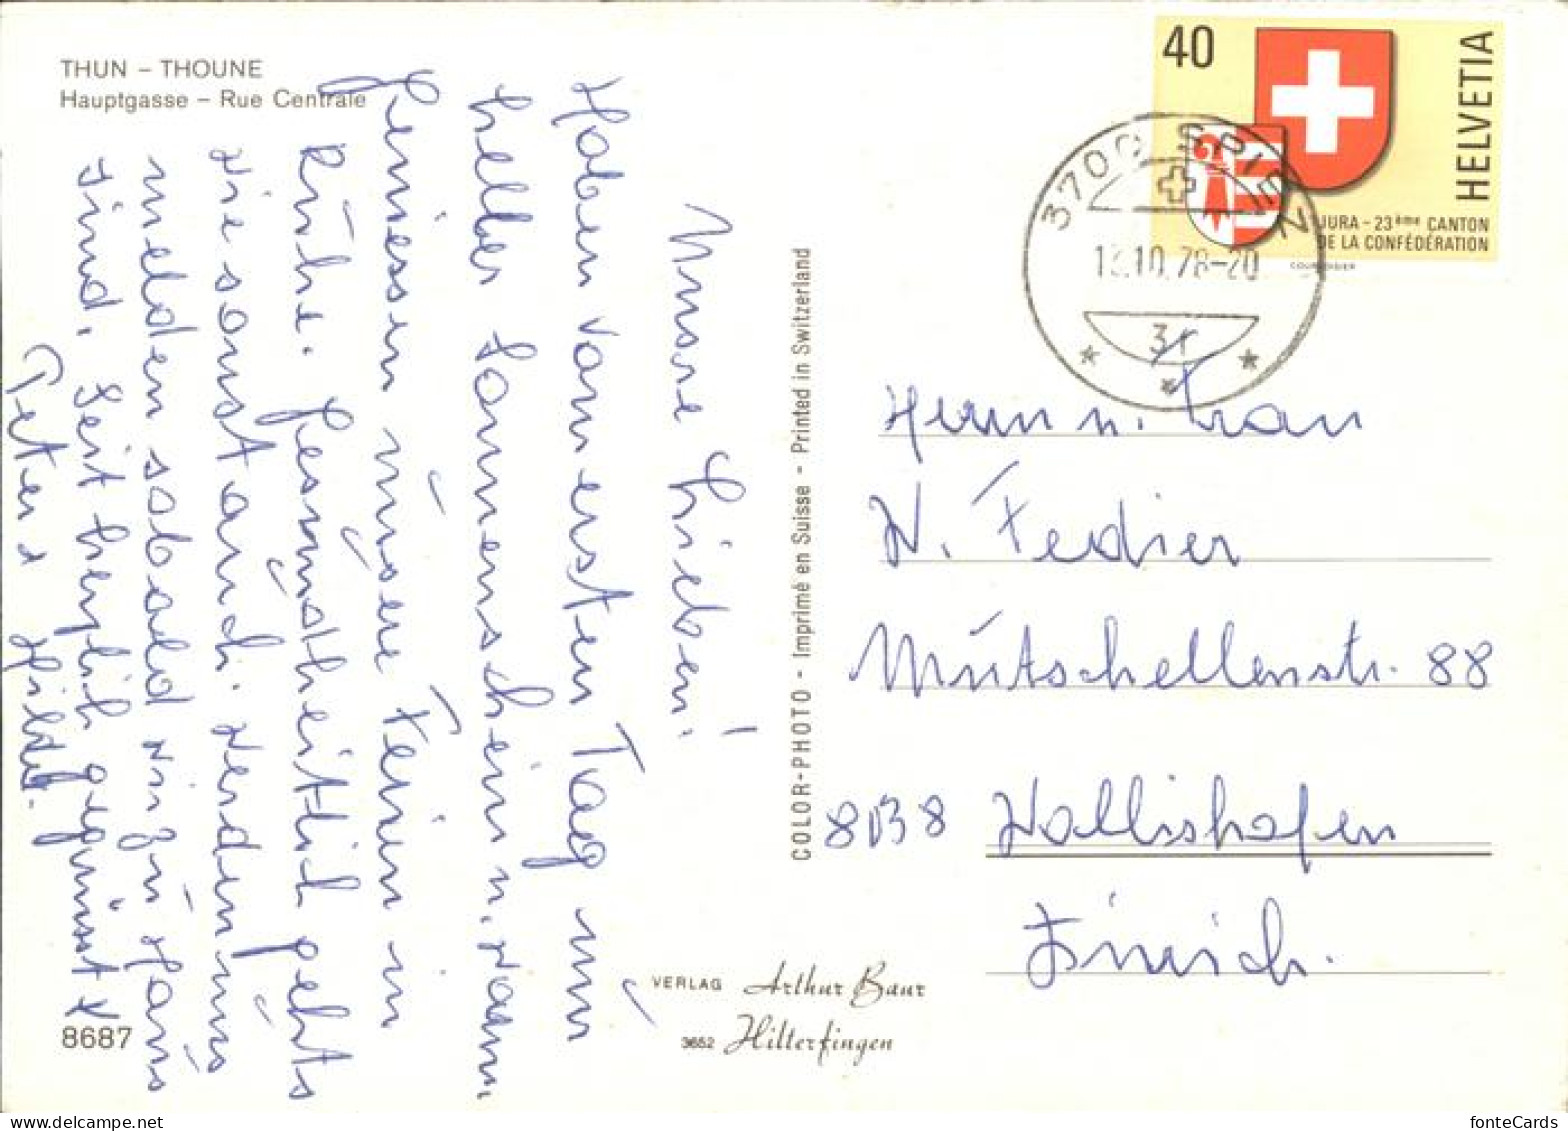 THUN – THOUNE
Hauptgasse – Rue Centrale
Unsere Lieben!
Haben vom ersten Tag nur
heller Sonnenschein u. warm.
Geniessen unsere Ferien in
Ruhe. Gesundheitlich gehts
wie sonst auch. Werden uns
melden sobald wir zu Haus
sind. Seit herzlich gegrüsst v
Peter & Hilde.
8687
COLOR-PHOTO - Imprimé en Suisse - Printed in Switzerland
VERLAG Arthur Baur
3652 Hilterfingen
40
HELVETIA
JURA - 23ème CANTON
DE LA CONFÉDÉRATION
COURVOISIER
3700 SPIEZ
10.78-20
Herrn u. Frau
W. Fedier
Mutschellenstr. 88
8038 Wollishofen
Zürich.
fonteCards